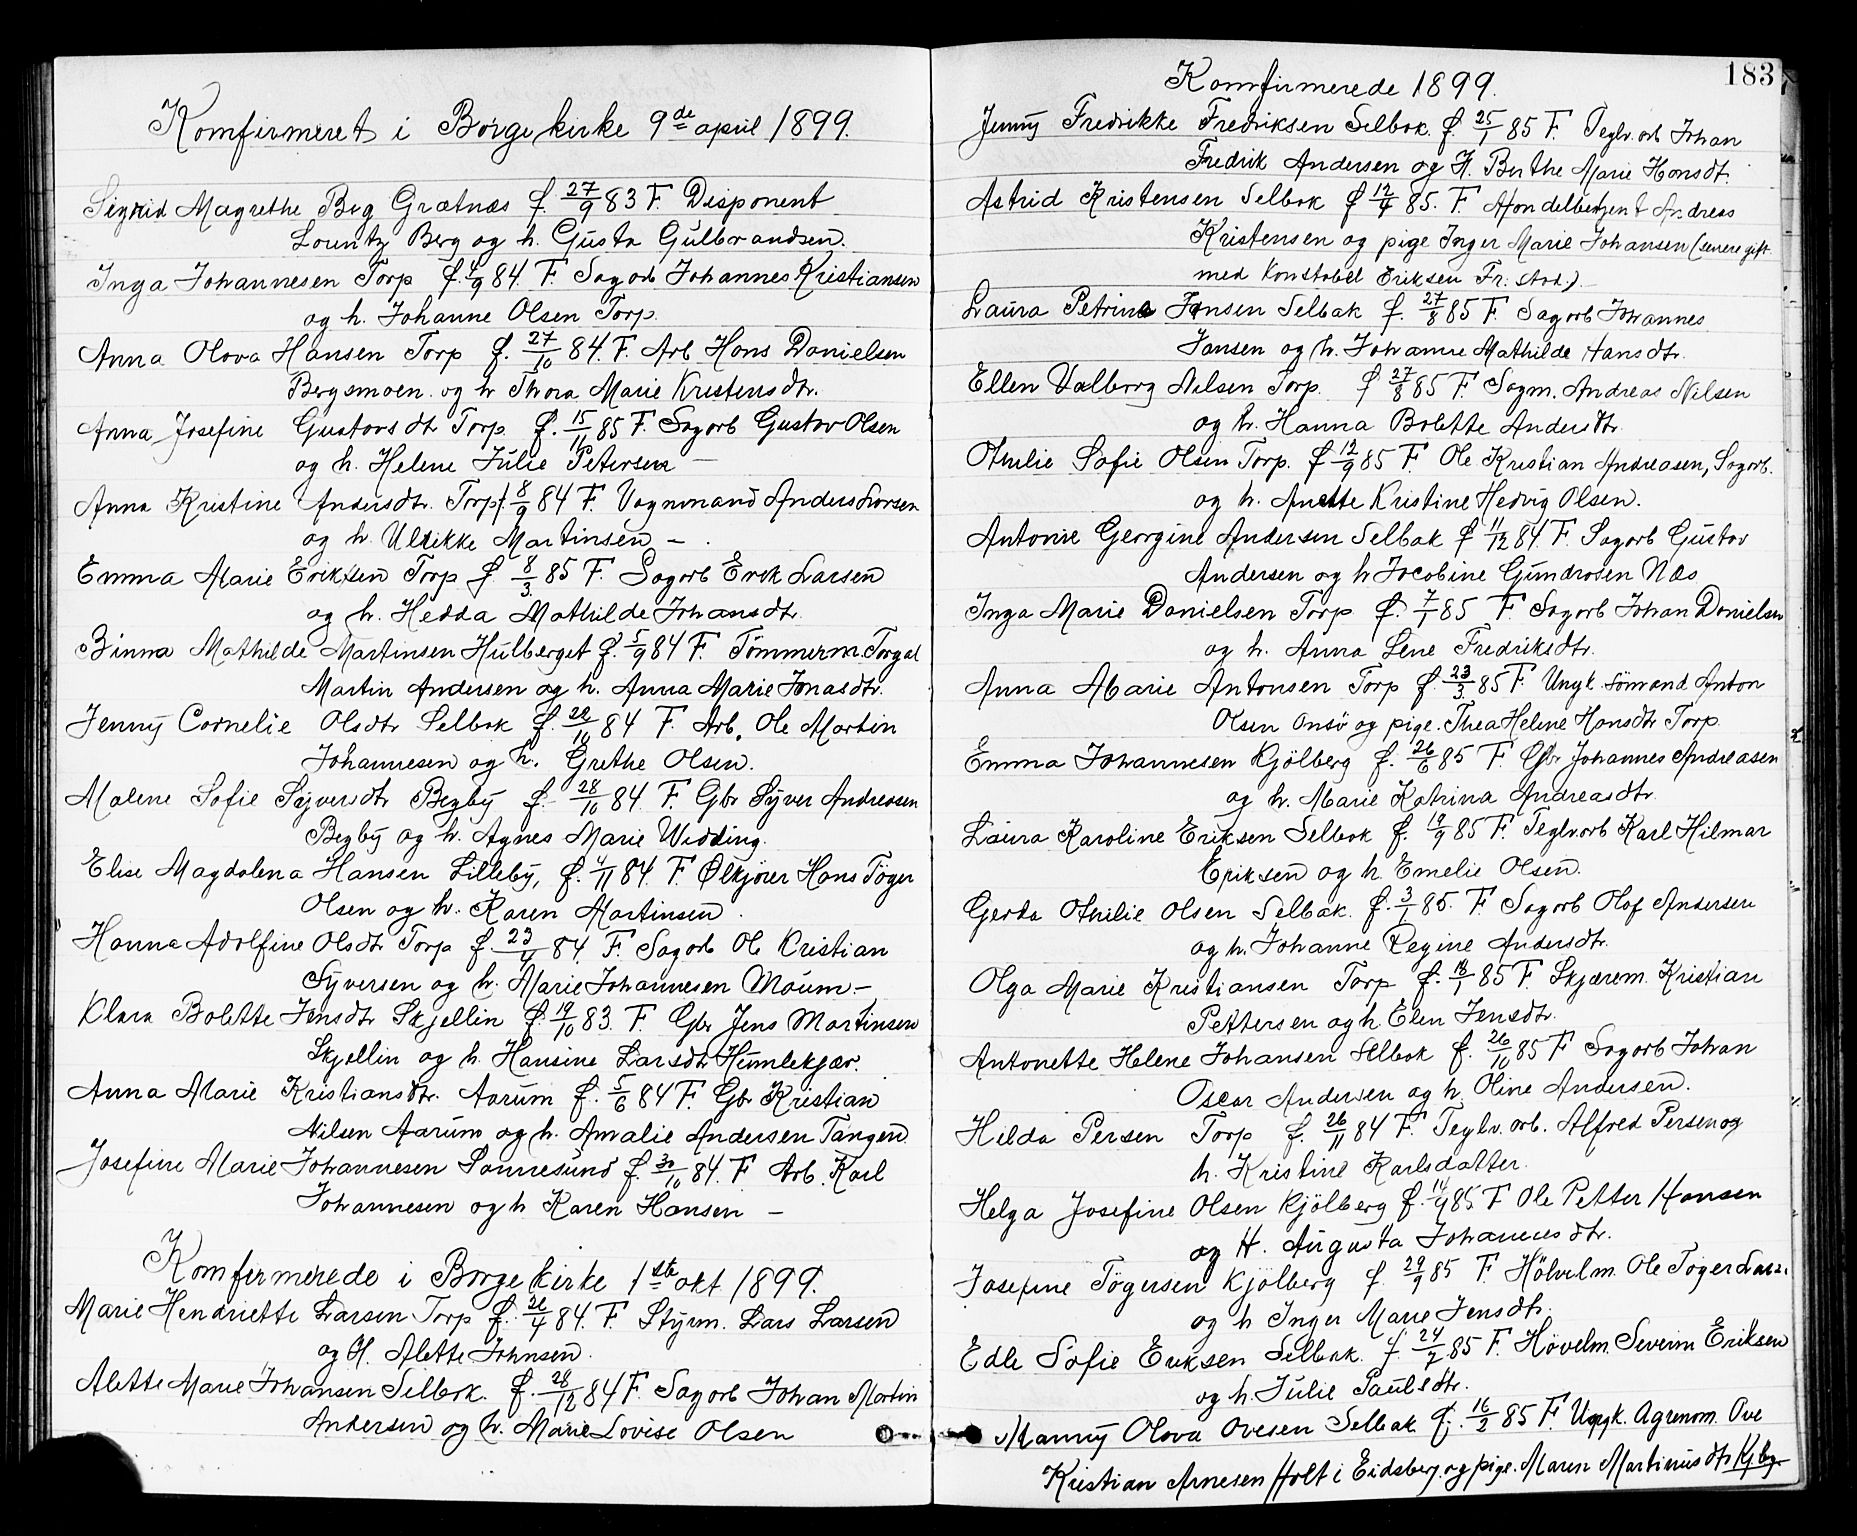 Komfirmeret i Borge kirke 9de april 1899.
Sigrid Magrethe Berg Grætnæs f. 27/9 83 F. Disponent
Lorentz Berg og h. Gusta Gulbrandsen.
Inga Johannesen Torp f. 4/9 84 F. Sagarb Johannes Kristiansen
og h. Johanne Olsen Torp.
Anna Olava Hansen Torp f. 27/10 84. F. Arb Hans Danielsen
Bergsmoen. og h Thora Marie Kristensdtr.
Anna Josefine Gustavsdtr Torp f. 15/11 85 F. Sagarb Gustav Olsen
og h. Helene Julie Petersen —
Anna Kristine Andersdtr. Torp f. 8/9 84 F. Vognmand Anders Larsen
og h. Ulrikke Martinsen —
Emma Marie Eriksen Torp f. 8/3 85 F. Sagarb Erik Larsen
og h. Hedda Mathilde Johansdtr.
Binna Mathilde Martinsen Hulberget f. 5/9 84 F. Tømmerm. Torgal
Martin Andersen og h. Anna Marie Jonasdtr.
Jenny Cornelie Olsdtr Selbak f. 28/11 84 F. Arb. Ole Martin
Johannesen og h. Grethe Olsen.
Malene Sofie Syversdtr Begby f. 28/10 84. F. Gbr Syver Andreasen
Begby og h. Agnes Marie Widding.
Elise Magdalena Hansen Lilleby, f. 4/11 84. F. Ølkjører Hans Tøger
Olsen og h. Karen Martinsen.
Hanna Adolfine Olsdtr Torp f. 23/4 84. F. Sagarb Ole Kristian
Syversen og h. Marie Johannesen Moum. —
Klara Bolette Jensdtr Skjellin f. 19/10 83. F. Gbr Jens Martinsen
Skjellin og h. Hansine Larsdtr Humlekjær.
Anna Marie Kristiansdtr. Aarum f. 5/6 84 F. Gbr Kristian
Nilsen Aarum og h. Amalie Andersen Tangen.
Josefine Marie Johannesen Sannesund f. 30/10 84. F. Arb. Karl
Johannesen og h Karen Hansen —
Komfirmerede i Borge kirke 1ste okt 1899.
Marie Henriette Larsen Torp f. 21/4 84. F. Styrm. Lars Larsen
og H. Alette Johnsen.
Alette Marie Johansen Selbak. f. 28/12 84 F. Sagarb Johan Martin
Andersen og h. Marie Lovise Olsen
183
Komfirmerede 1899.
Jenny Fredrikke Fredriksen Selbak. f. 25/1 85 F. Teglv.arb Johan
Fredrik Andersen og H. Berthe Marie Hansdt.
Astrid Kristensen Selbak f 12/4 85. F. Handelbetjent Andreas
Kristensen og pige Inger Marie Johansen (senere gift
med Konstabel Eriksen Fr: stad.)
Laura Petrine Jansen Selbak f. 27/8 85 F. Sagarb Johannes
Jansen og h. Johanne Mathilde Hansdtr.
Ellen Valborg Nilsen Torp. f 27/8 85 F. Sagm. Andreas Nilsen
og h. Hanna Bolette Andersdtr
Othilie Sofie Olsen Torp. f 12/9 85 F Ole Kristian Andreasen, Sagarb.
og h. Anette Kristine Hedvig Olsen.
Antonie Georgine Andersen Selbak f 11/12 84. F. Sagarb Gustav
Andersen og h Jocobine Gundrosen Næs
Inga Marie Danielsen Torp f. 7/1 85 F Sagarb Johan Danielsen
og h. Anna Lene Fredriksdtr.
Anna Marie Antonsen Torp f. 23/3 85 F. Ungk Sømand Anton
Olsen Onsø og pige. Thea Helene Hansdtr Torp.
Emma Johannesen Kjølberg f. 26/6 85 F. Gbr Johannes Andreasen
og h. Marie Katrina Andreasdtr.
Laura Karoline Eriksen Selbak f. 19/9 85 F. Teglv.arb Karl Hilmar
Eriksen og h. Emelie Olsen.
Gerda Othilie Olsen Selbak. f. 3/1 85. F. Sagarb Olof Andersen
og h. Johanne Regine Andersdtr.
Olga Marie Kristiansen Torp f. 18/1 85 F. Skjærem. Kristian
Pettersen og h Elen Jensdtr.
Antonette Helene Johansen Selbak f. 26/10 85 F Sagarb Johan
Oscar Andersen og h. Oline Andersen.
Hilda Persen Torp f. 26/11 84 F. Teglv. arb. Alfred Persen og
h. Kristine Karlsdatter.
Helga Josefine Olsen Kjölberg f. 14/9 85 F Ole Petter Hansen
og H. Augusta Johannesdtr.
Josefine Tögersen Kjölberg f 29/9 85 F. Hölvelm. Ole Töger Lars.
og h Inger Marie Jensdtr.
Edle Sofie Eriksen Selbak. f. 24/7 85 F. Hövelm. Severin Eriksen
og h. Julie Paulsdtr.
Manny Olava Ovesen Selbak f. 16/2 85 F Ungk. Agrenom. Ove
Kristian Arnesen Holt i Eidsberg. og pige. Maren Martinusdtr Kjlbrg